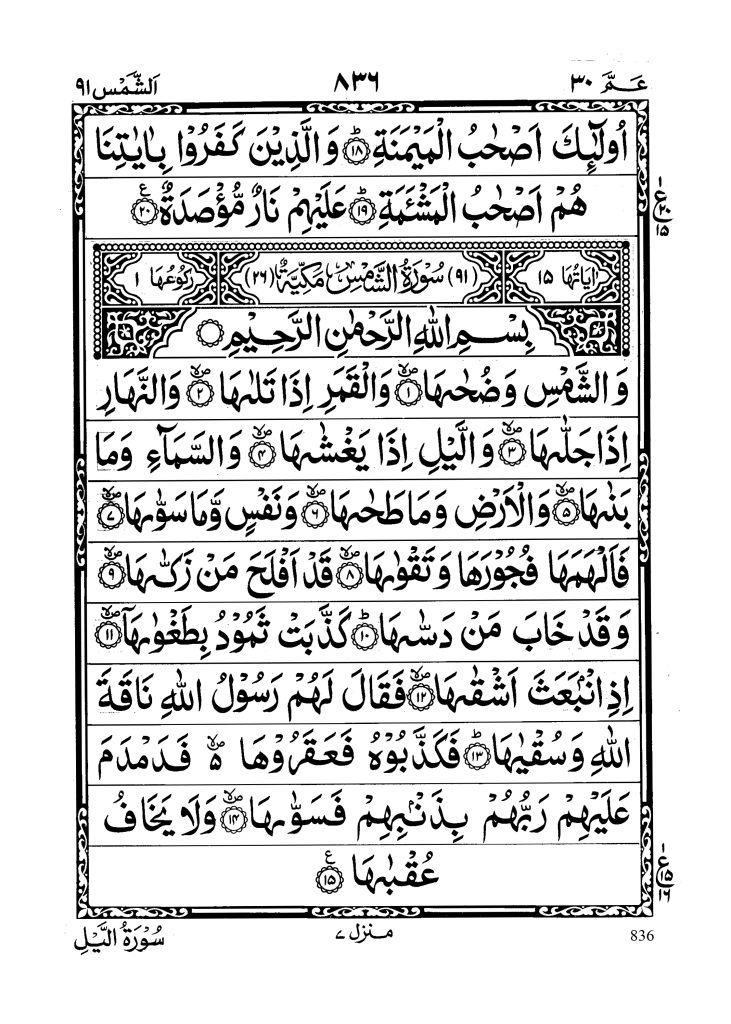 عـمّ ٣٠ ٨٣٦ اَلشَّمْس ٩١
اُولٰٓئِكَ اَصْحٰبُ الْمَيْمَنَةِ ؕ﴿۱۸﴾ وَ الَّذِيْنَ كَفَرُوْا بِاٰيٰتِنَا
هُمْ اَصْحٰبُ الْمَشْـَٔمَةِ ؕ﴿۱۹﴾ عَلَيْهِمْ نَارٌ مُّؤْصَدَةٌ ﴿۲۰﴾ ع
١ ع ٢٠ ١٥
اٰيَاتُهَا ١٥ (٩١) سُوْرَةُ الشَّمْسِ مَكِّيَّةٌ (٢٦) رُكُوْعُهَا ١
بِسْمِ اللهِ الرَّحْمٰنِ الرَّحِيْمِ
وَ الشَّمْسِ وَ ضُحٰىهَا ۪ۙ﴿۱﴾ وَالْقَمَرِ اِذَا تَلٰىهَا ۪ۙ﴿۲﴾ وَالنَّهَارِ
اِذَا جَلّٰىهَا ۪ۙ﴿۳﴾ وَ الَّيْلِ اِذَا يَغْشٰىهَا ۪ۙ﴿۴﴾ وَ السَّمَآءِ وَمَا
بَنٰىهَا ۪ۙ﴿۵﴾ وَ الْاَرْضِ وَمَا طَحٰىهَا ۪ۙ﴿۶﴾ وَ نَفْسٍ وَّمَا سَوّٰىهَا ۪ۙ﴿۷﴾
فَاَلْهَمَهَا فُجُوْرَهَا وَ تَقْوٰىهَا ۪ۙ﴿۸﴾ قَدْ اَفْلَحَ مَنْ زَكّٰىهَا ۪ۙ﴿۹﴾
وَ قَدْ خَابَ مَنْ دَسّٰىهَا ؕ﴿۱۰﴾ كَذَّبَتْ ثَمُوْدُ بِطَغْوٰىهَاۤ ۪ۙ﴿۱۱﴾
اِذِ انْۢبَعَثَ اَشْقٰىهَا ۪ۙ﴿۱۲﴾ فَقَالَ لَهُمْ رَسُوْلُ اللهِ نَاقَةَ
اللهِ وَ سُقْيٰهَا ؕ﴿۱۳﴾ فَكَذَّبُوْهُ فَعَقَرُوْهَا ۪ۙ۬ ۵ فَدَمْدَمَ
عَلَيْهِمْ رَبُّهُمْ بِذَنْۢبِهِمْ فَسَوّٰىهَا ۪ۙ﴿۱۴﴾ وَلَا يَخَافُ
عُقْبٰهَا ﴿۱۵﴾ ع
١ ع ١٥ ١٦
سُوْرَةُ الَّيْلِ منزل ٧ 836